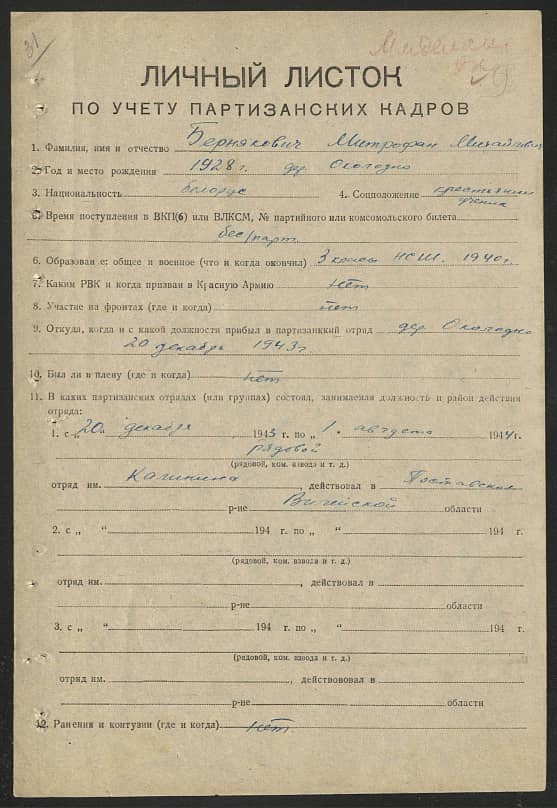 31
ЛИЧНЫЙ ЛИСТОК
ПО УЧЕТУ ПАРТИЗАНСКИХ КАДРОВ
1. Фамилия, имя и отчество Бернякович Митрофан Михайлович
2. Год и место рождения 1928 г. дер. Околодно
3. Национальность белорус 4. Соцположение крестьянин
ученик
5. Время поступления в ВКП(б) или ВЛКСМ, № партийного или комсомольского билета
бес/парт.
6. Образование: общее и военное (что и когда окончил) 3 класса НСШ. 1940 г.
7. Каким РВК и когда призван в Красную Армию нет
8. Участие на фронтах (где и когда) нет
9. Откуда, когда и с какой должности прибыл в партизанский отряд дер. Околодно
20 декабрь 1943 г
10. Был ли в плену (где и когда) нет
11. В каких партизанских отрядах (или группах) состоял, занимаемая должность и район действия
отряда:
1. с „20" декабря 1943 г. по „1." августа 1944 г.
рядовой
(рядовой, ком. взвода и т. д.)
отряд им. Калинина, действовал в Поставском
р-не Вилейской области
2. с „ " 194 г. по „ " 194 г.
(рядовой, ком. взвода и т. д.)
отряд им. , действовал в
р-не области
3. с „ " 194 г. по „ " 194 г.
(рядовой, ком. взвода и т. д.)
отряд им. , действововал в
р-не области
12. Ранения и контузии (где и когда) нет